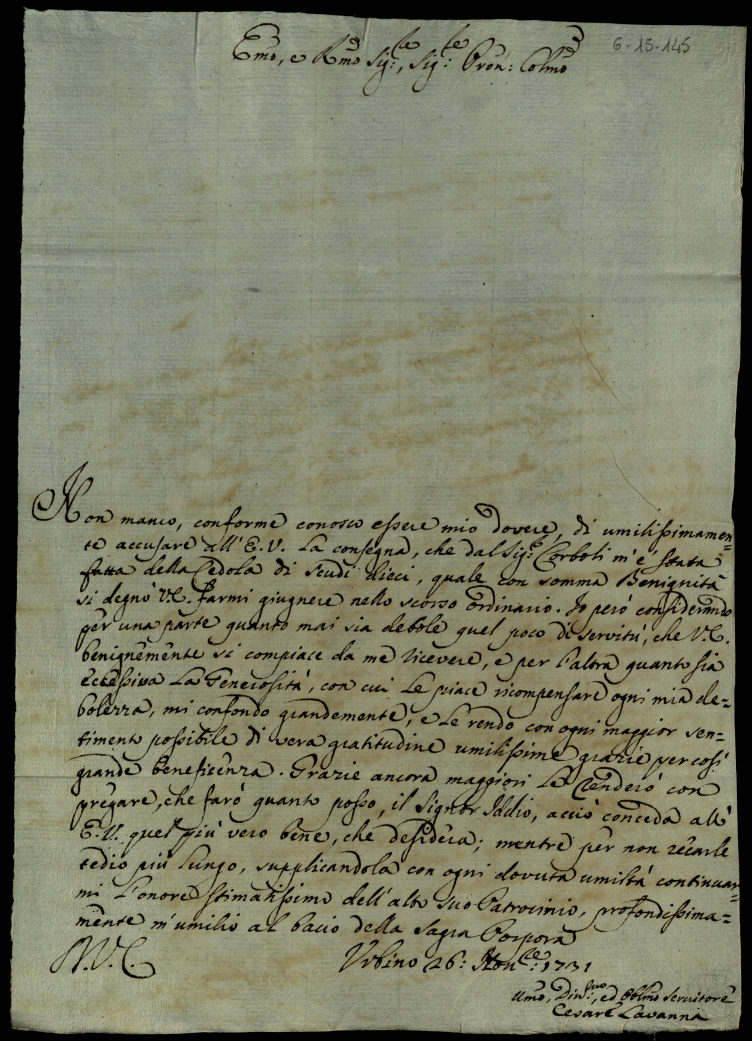 6-15-145
Emo, e Rmo Sigre, Sigre Pron: Colmo
Non manco, conforme conosco essere mio dovere, di umilissimamen=
te accusare all'E.V. la consegna, che dal Sigr Corboli m'è stata
fatta della Cedola di scudi dieci, quale con somma Benignità
si degnò V.E. farmi giugnere nello scorso ordinario. Io però considerando
per una parte quanto mai sia debole quel poco di servitù, che V.E.
benignemente si compiace da me ricevere, e per l'altra quanto sia
eccessiva la Generosità, con cui le piace ricompensare ogni mia de=
bolezza, mi confondo grandemente, e le rendo con ogni maggior sen=
timento possibile di vera gratitudine umilissime grazie per così
grande beneficenza. Grazie ancora maggiori le renderò con
pregare, che farò quanto posso, il Signor Iddio, acciò conceda all'
E.V. quel più vero bene, che desidera; mentre per non recarle
tedio più lungo, supplicandola con ogni dovuta umiltà continuar=
mi l'onore stimatissimo dell'alto suo Patrocinio, profondissima=
mente m'umilio al bacio della Sagra Porpora
D.V.E.
Urbino 26: Nonbre: 1731
Umo, Divmo, ed Obblmo Servitore
Cesare Lavanna